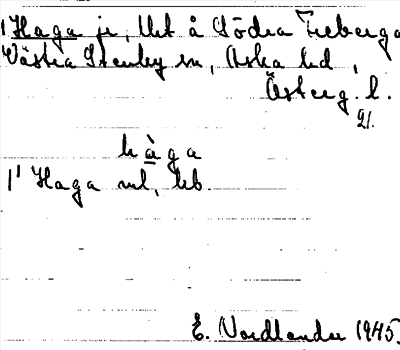 1 Haga je, lht å Södra Freberga
Västra Stenby sn, Aska hd,
Österg. l.
21.
hàga
1' Haga ml, hb.
E. Nordlander 1945.